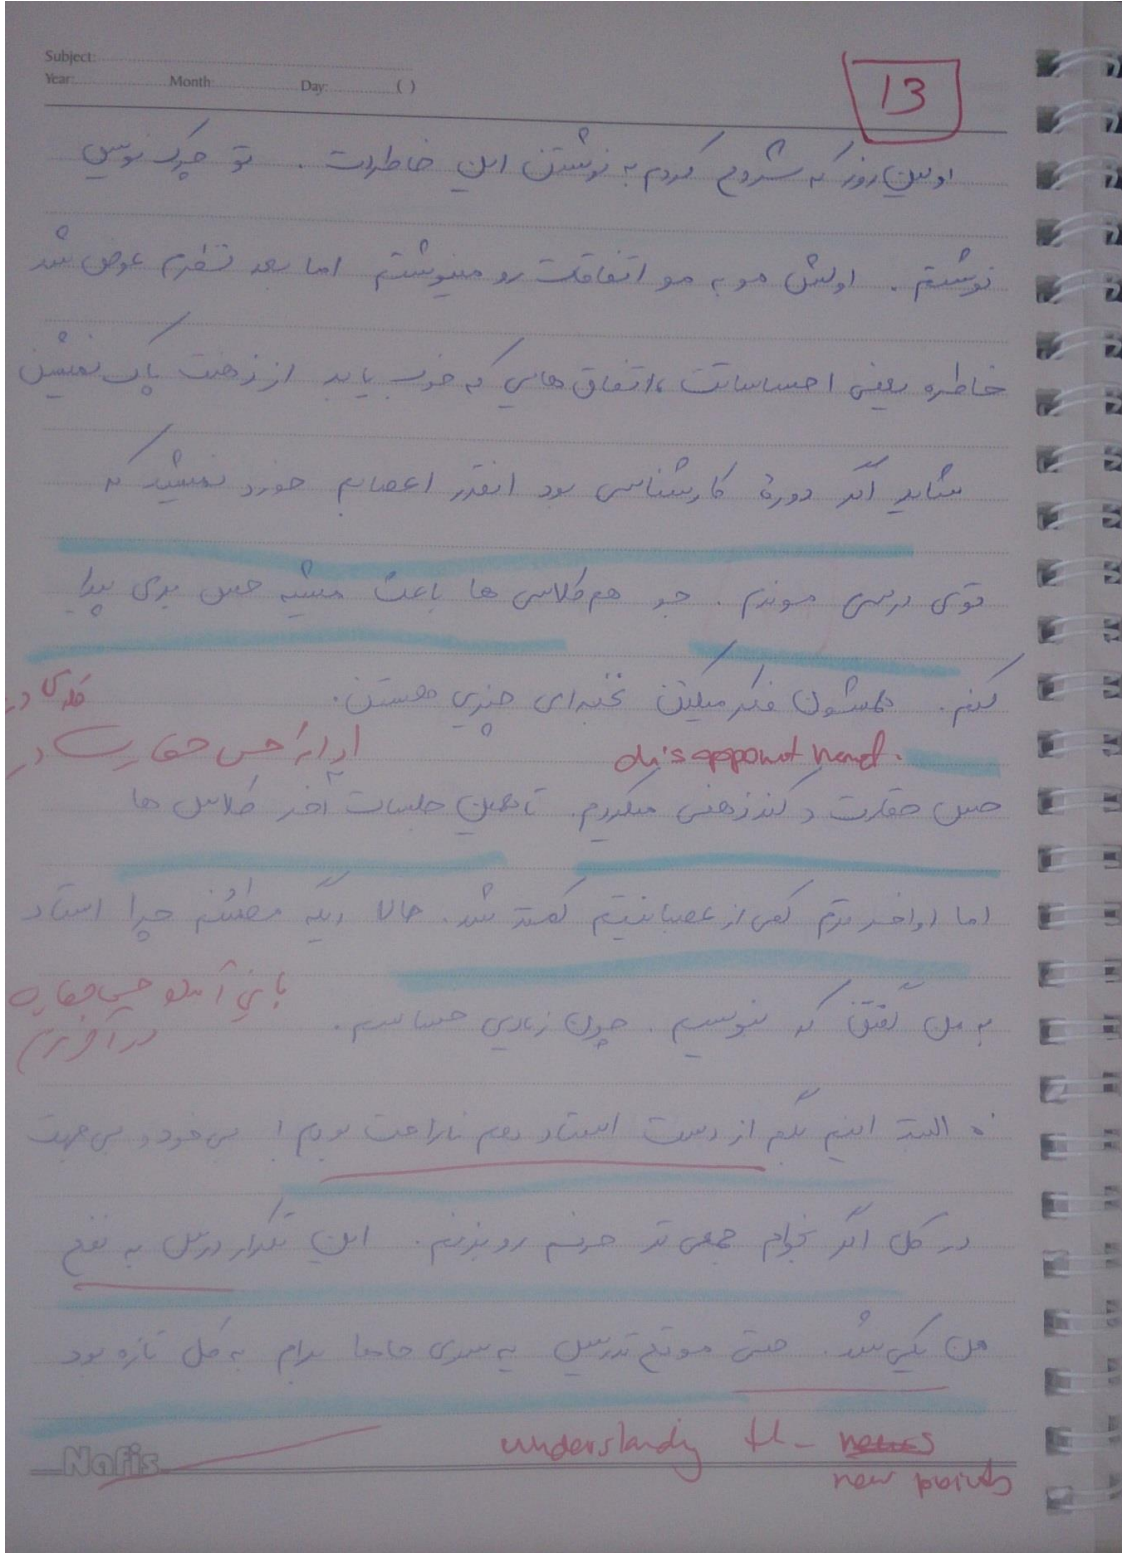 Subject:
Year: Month: Day: ( )
13
اولین روز که شروع کردم به نوشتن این خاطرات . تو چرک نویس
نوشتم . اولش مو به مو اتفاقات رو مینوشتم اما بعد نظرم عوض شد
خاطره یعنی احساساتت ، اتفاق هایی که خوب یا بد از ذهنت پاک نمیشن
شاید اگر دورۀ کارشناسی بود انقدر اعصابم خورد نمیشد که
توی درس موندم . جو هم کلاسی ها باعث میشه حس بدی پیدا
کنم . همشون فکر میکنن نخبه ای چیزی هستن .
ارائه حس حقارت در
حس حقارت و کند ذهنی میکردم . تا همین جلسات آخر کلاس ها
اما اواخر ترم کمی از عصبانیتم کمتر شد . حالا دیگه مطمئنم چرا استاد
به من گفتن که بنویسم . چون زیادی حساسم .
البته اینم بگم از دست استاد هم ناراحت بودم ! بی خود و بی جهت
در کل اگر بخوام جمعی تر حرفم رو بزنم . این تکرار درس به نفع
من یکی شد . حتی موقع تدریس یه سری جاها برام به کل تازه بود
understandy the news
new points
Nafis